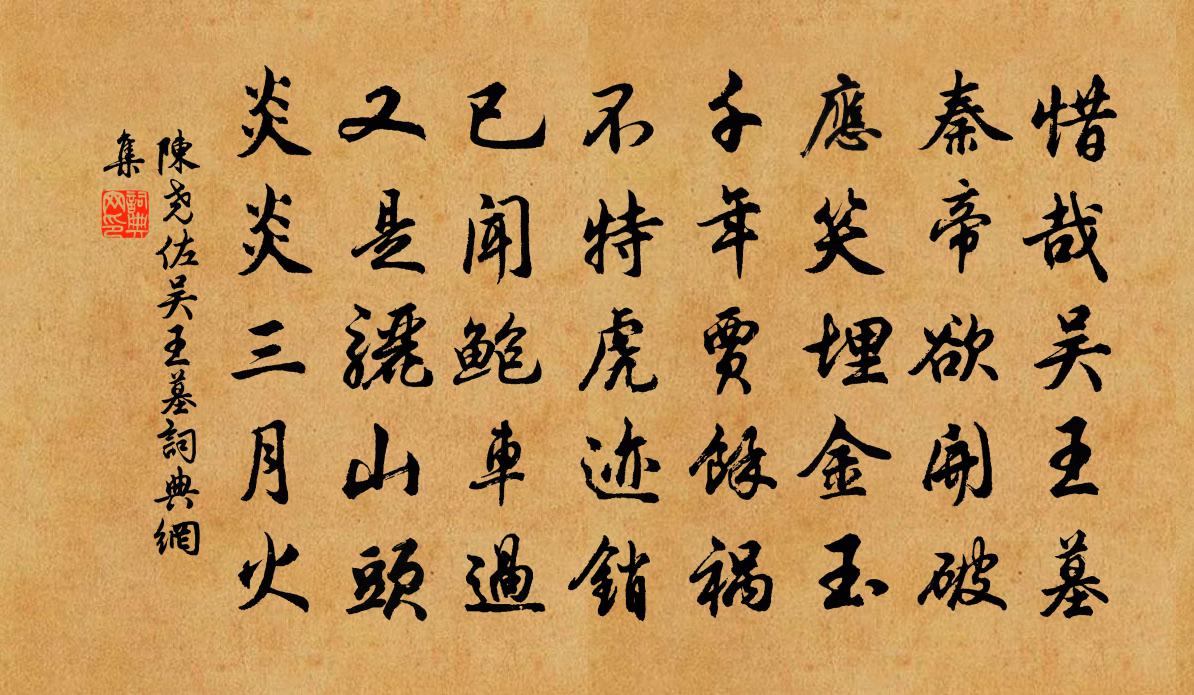 惜哉吴王墓
秦帝欲開破
應笑埋金玉
千年賈餘禍
不特虎迹銷
已聞鮑車過
又是驪山頭
炎炎三月火
陳尧佐吴王墓詞典網
集
詞典
网印